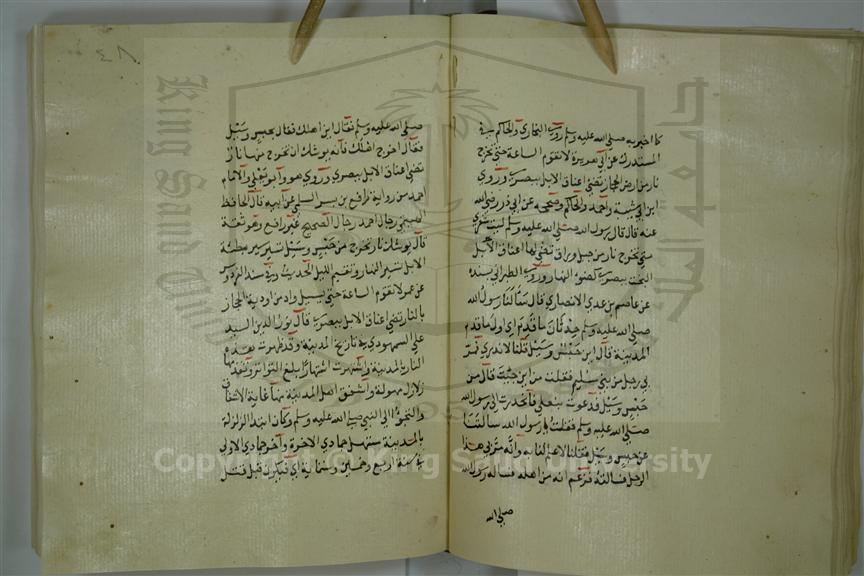 كما اخبر به صلى الله عليه وسلم روى البخاري والحاكم في
المستدرك عن ابي هريرة لا تقوم الساعة حتى تخرج
نار من ارض الحجاز تضئ اعناق الابل ببصرى وروى
ابن ابي شيبة واحمد والحاكم وصححه عن ابي ذر رضي الله
عنه قال قال رسول الله صلى الله عليه وسلم ليت شعري
متى تخرج نار من جبل وراق تضئ لها اعناق الابل
البخت ببصرى كضوء النهار وروى الطبراني بسنده
عن عاصم بن عدي الانصاري قال سألنا رسول الله
صلى الله عليه وسلم حدثان ما قدم اي اول ما قدم
المدينة قال اين حبس وسيل قلنا لا ندري فمر
بي رجل من بني سليم فقلت من اين جئت قال من
حبس وسيل فدعوت بنعلي فانحدرت الى رسول الله
صلى الله عليه وسلم فقلت يا رسول الله سالتنا
عن حبس وسيل فقلنا لا علم لنا به وانه مر بي هذا
الرجل فسالته فزعم انه من اهله فساله رسول الله
صلى الله
٤٨
صلى الله عليه وسلم فقال اين اهلك فقال بحبس وسيل
فقال اخرج اهلك فانه يوشك ان تخرج منها نار
تضئ اعناق الابل ببصرى وروى هو وابو يعلى والامام
احمد من رواية رافع بن بسر السلمي عن ابيه قال الحافظ
الهيثمي رجال احمد رجال الصحيح غير رافع وهو ثقة
قال يوشك نار تخرج من حبس وسيل تسير سير مطيئة
الابل تسير النهار وتقيم الليل الحديث وفي مسند الفردوس
عن عمر لا تقوم الساعة حتى يسيل واد من اودية الحجاز
بالنار تضئ اعناق الابل ببصرى قال نور الدين السيد
علي السمهودي في تاريخ المدينة وقد ظهرت بعده
النار بالمدينة واشتهرت اشتهارا بلغ التواتر وتقدمها
زلازل مهولة واشفق اهل المدينة منها غاية الاشفاق
والتجوا الى النبي صلى الله عليه وسلم وكان ابتدا الزلزلة
بالمدينة مستهل جمادي الاخرة وآخر جمادي الاولى
في سنة اربع وخمسين وستمائة اي قبل قتل
King Saud University
جامعة الملك سعود
Copyright © King Saud University